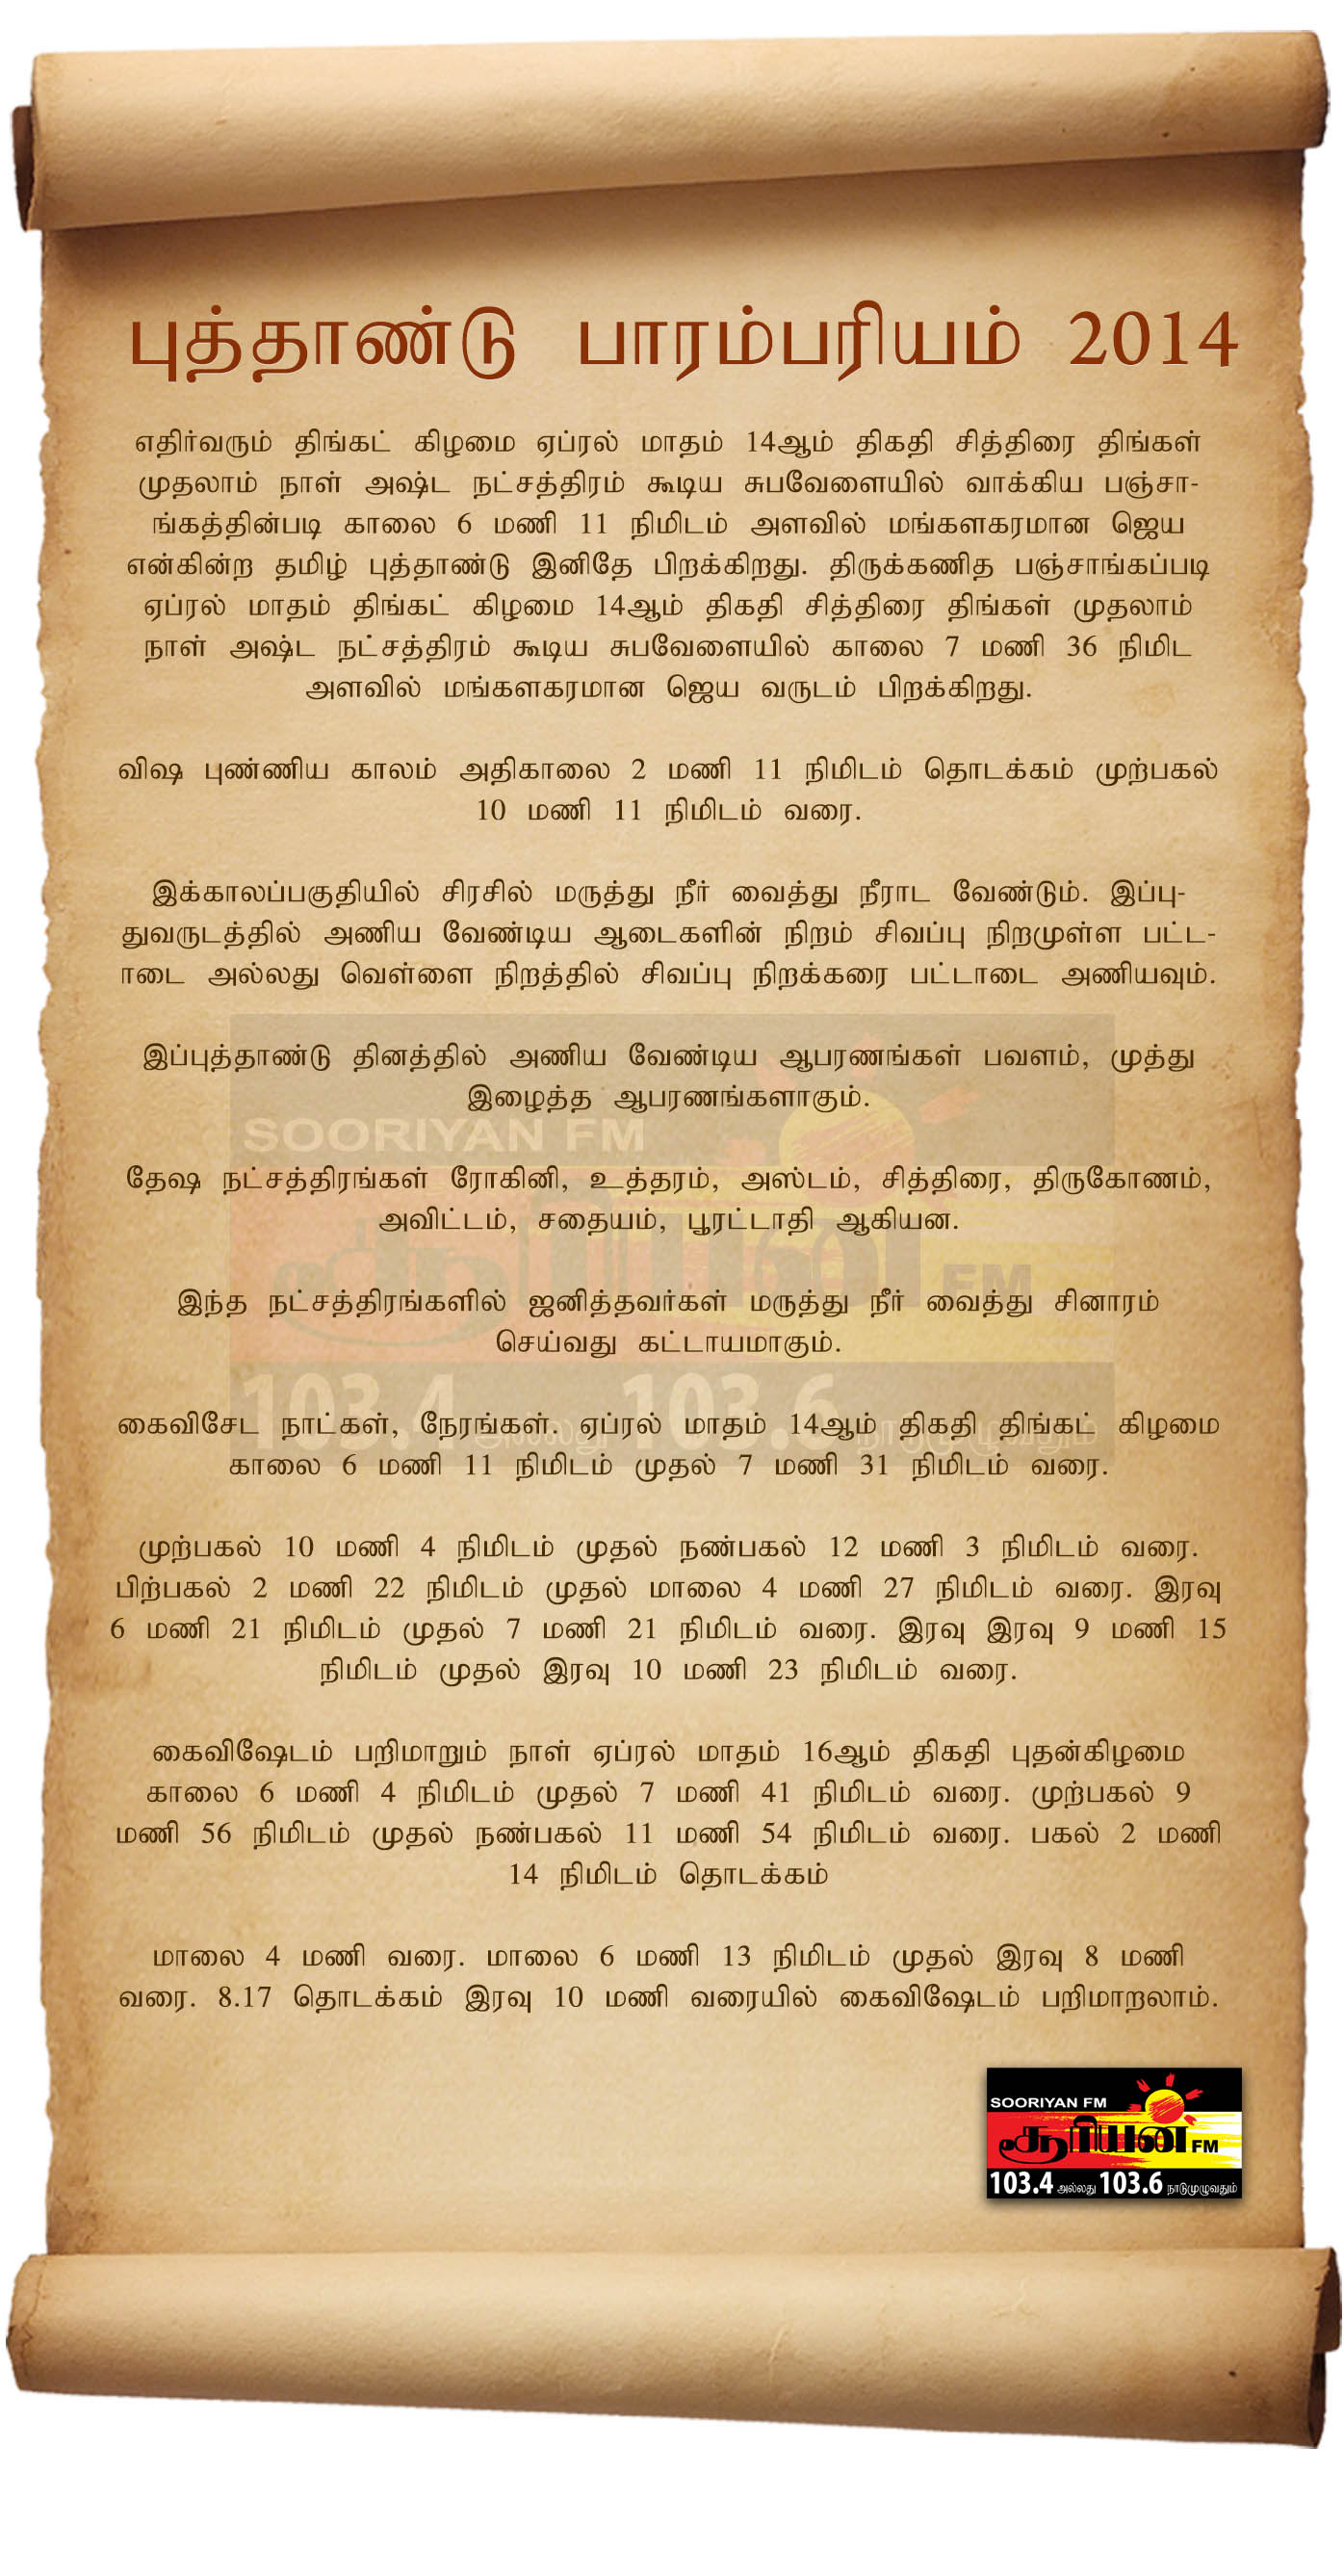 புத்தாண்டு பாரம்பரியம் 2014
எதிர்வரும் திங்கட் கிழமை ஏப்ரல் மாதம் 14ஆம் திகதி சித்திரை திங்கள்
முதலாம் நாள் அஷ்ட நட்சத்திரம் கூடிய சுபவேளையில் வாக்கிய பஞ்சா-
ங்கத்தின்படி காலை 6 மணி 11 நிமிடம் அளவில் மங்களகரமான ஜெய
என்கின்ற தமிழ் புத்தாண்டு இனிதே பிறக்கிறது. திருக்கணித பஞ்சாங்கப்படி
ஏப்ரல் மாதம் திங்கட் கிழமை 14ஆம் திகதி சித்திரை திங்கள் முதலாம்
நாள் அஷ்ட நட்சத்திரம் கூடிய சுபவேளையில் காலை 7 மணி 36 நிமிட
அளவில் மங்களகரமான ஜெய வருடம் பிறக்கிறது.
விஷ புண்ணிய காலம் அதிகாலை 2 மணி 11 நிமிடம் தொடக்கம் முற்பகல்
10 மணி 11 நிமிடம் வரை.
இக்காலப்பகுதியில் சிரசில் மருத்து நீர் வைத்து நீராட வேண்டும். இப்பு-
துவருடத்தில் அணிய வேண்டிய ஆடைகளின் நிறம் சிவப்பு நிறமுள்ள பட்ட-
ாடை அல்லது வெள்ளை நிறத்தில் சிவப்பு நிறக்கரை பட்டாடை அணியவும்.
இப்புத்தாண்டு தினத்தில் அணிய வேண்டிய ஆபரணங்கள் பவளம், முத்து
இழைத்த ஆபரணங்களாகும்.
தேஷ நட்சத்திரங்கள் ரோகினி, உத்தரம், அஸ்டம், சித்திரை, திருகோணம்,
அவிட்டம், சதையம், பூரட்டாதி ஆகியன.
இந்த நட்சத்திரங்களில் ஜனித்தவர்கள் மருத்து நீர் வைத்து சினாரம்
செய்வது கட்டாயமாகும்.
கைவிசேட நாட்கள், நேரங்கள். ஏப்ரல் மாதம் 14ஆம் திகதி திங்கட் கிழமை
காலை 6 மணி 11 நிமிடம் முதல் 7 மணி 31 நிமிடம் வரை.
முற்பகல் 10 மணி 4 நிமிடம் முதல் நண்பகல் 12 மணி 3 நிமிடம் வரை.
பிற்பகல் 2 மணி 22 நிமிடம் முதல் மாலை 4 மணி 27 நிமிடம் வரை. இரவு
6 மணி 21 நிமிடம் முதல் 7 மணி 21 நிமிடம் வரை. இரவு இரவு 9 மணி 15
நிமிடம் முதல் இரவு 10 மணி 23 நிமிடம் வரை.
கைவிஷேடம் பறிமாறும் நாள் ஏப்ரல் மாதம் 16ஆம் திகதி புதன்கிழமை
காலை 6 மணி 4 நிமிடம் முதல் 7 மணி 41 நிமிடம் வரை. முற்பகல் 9
மணி 56 நிமிடம் முதல் நண்பகல் 11 மணி 54 நிமிடம் வரை. பகல் 2 மணி
14 நிமிடம் தொடக்கம்
மாலை 4 மணி வரை. மாலை 6 மணி 13 நிமிடம் முதல் இரவு 8 மணி
வரை. 8.17 தொடக்கம் இரவு 10 மணி வரையில் கைவிஷேடம் பறிமாறலாம்.
SOORIYAN FM
சூரியன் FM
103.4 அல்லது 103.6 நாடுமுழுவதும்
SOORIYAN FM
சூரியன் FM
103.4 அல்லது 103.6 நாடுமுழுவதும்